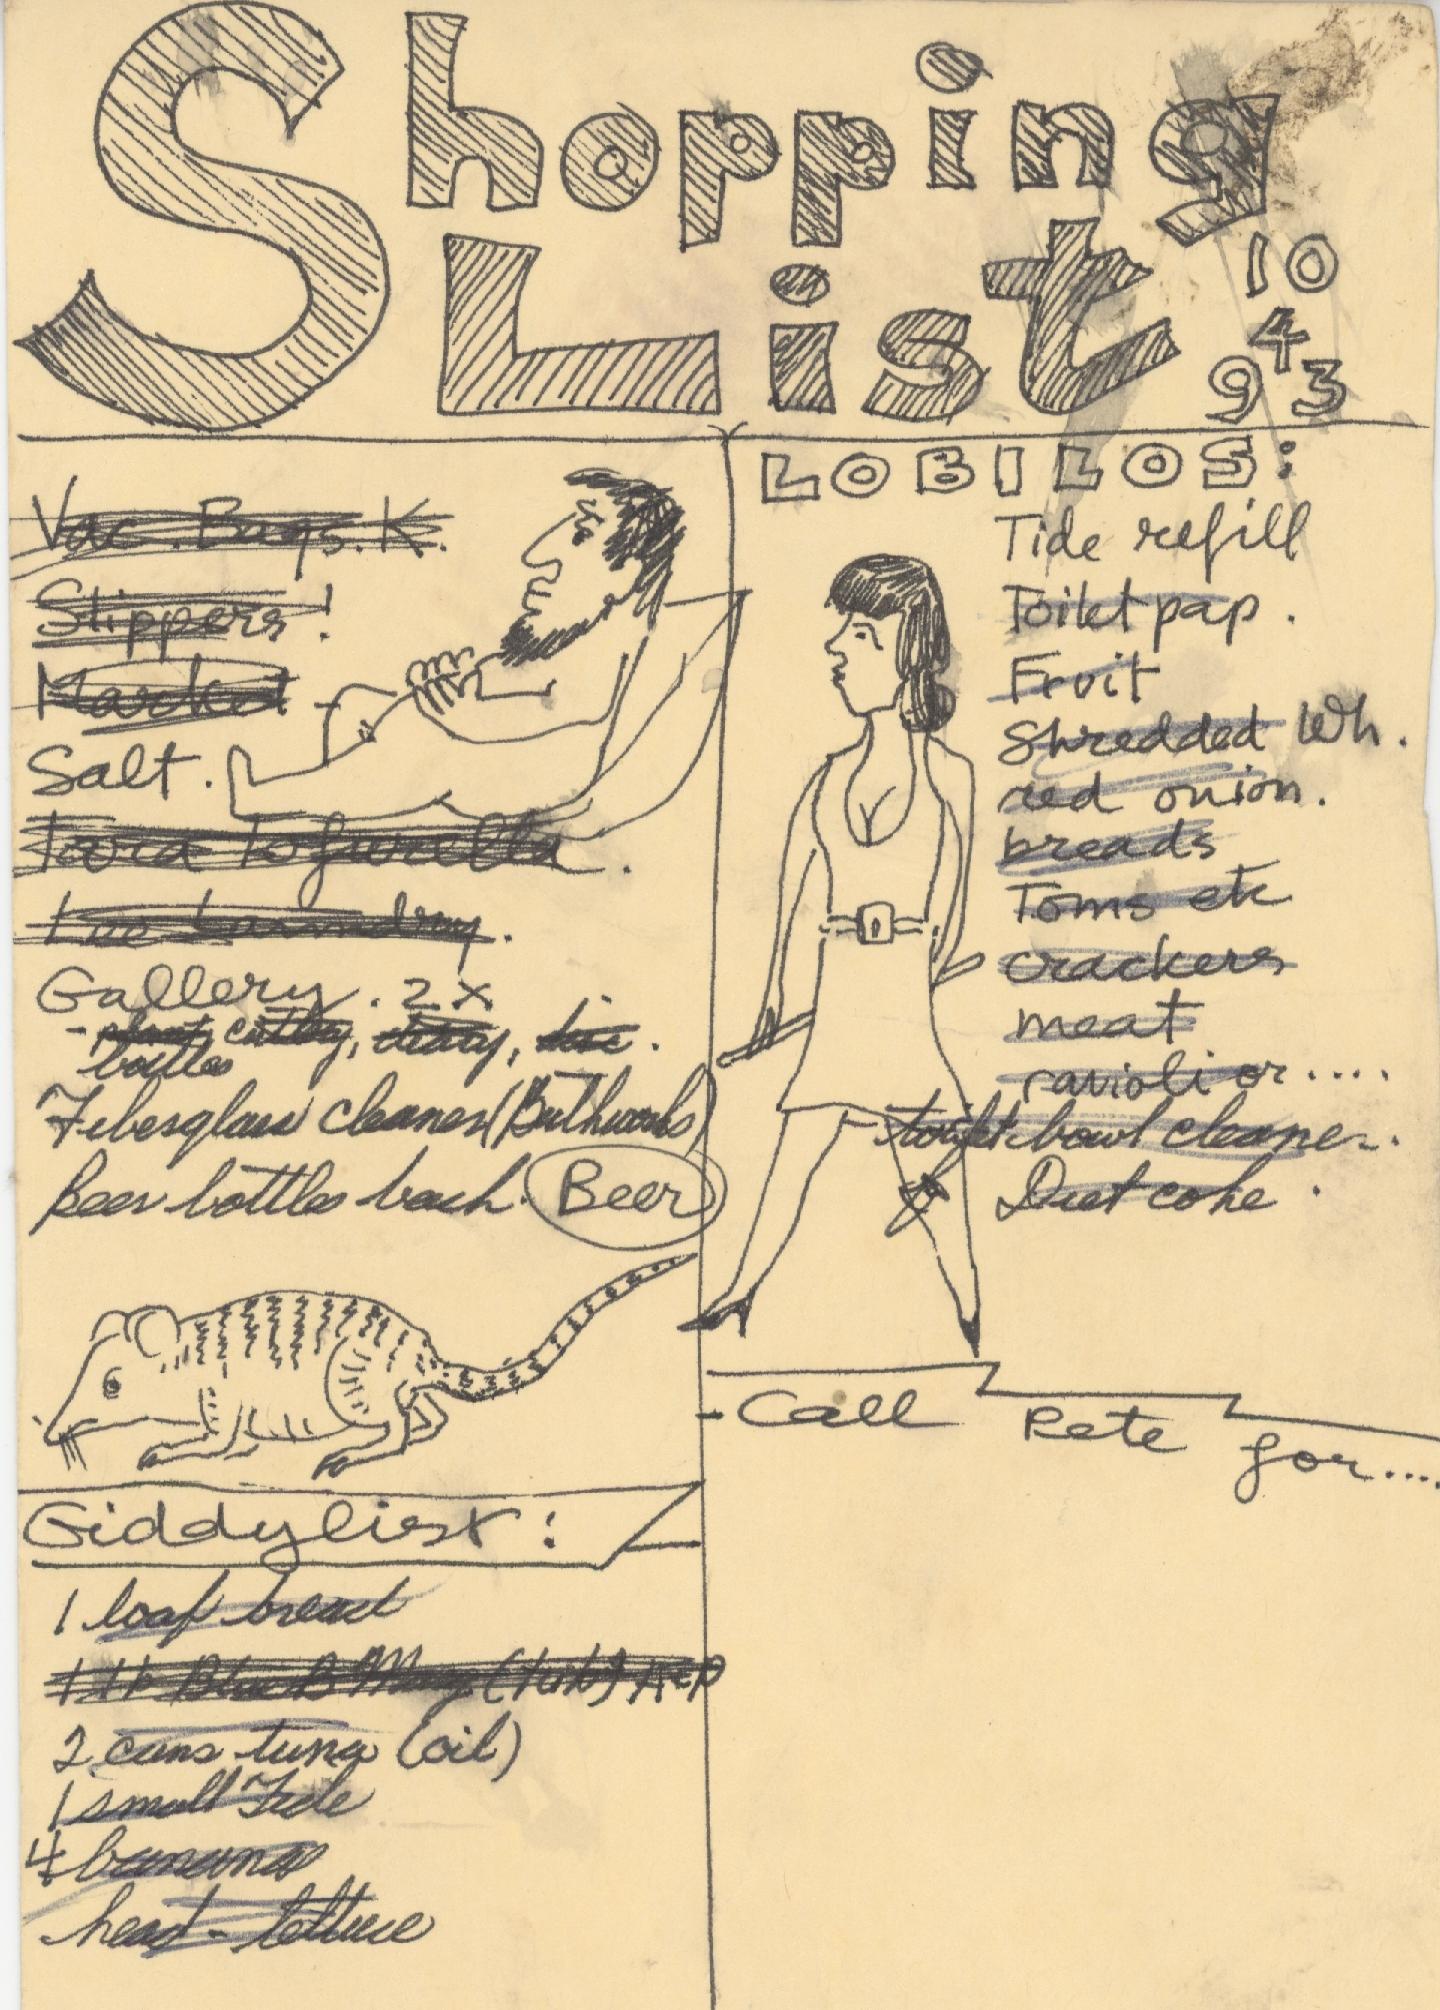 Shopping
List
10
4
93
Vac. Bags. K.
Slippers!
Market
Salt.
Lee Laundry.
Gallery. 2x
- plant, cutlery, diary, disc.
bottles
Fiberglass cleaner (Bathworks)
Beer bottles back. Beer
Giddylist:
1 loaf bread
1 lb Blue B Marg (tub) A&P
2 cans tuna (oil)
1 small Tide
4 bananas
head - lettuce
LOBILOS:
Tide refill
Toilet pap.
Fruit
Shredded Wh.
red onion.
breads
Toms etc
crackers
meat
ravioli or....
toilet bowl cleaner.
Diet coke.
- Call Pete for....